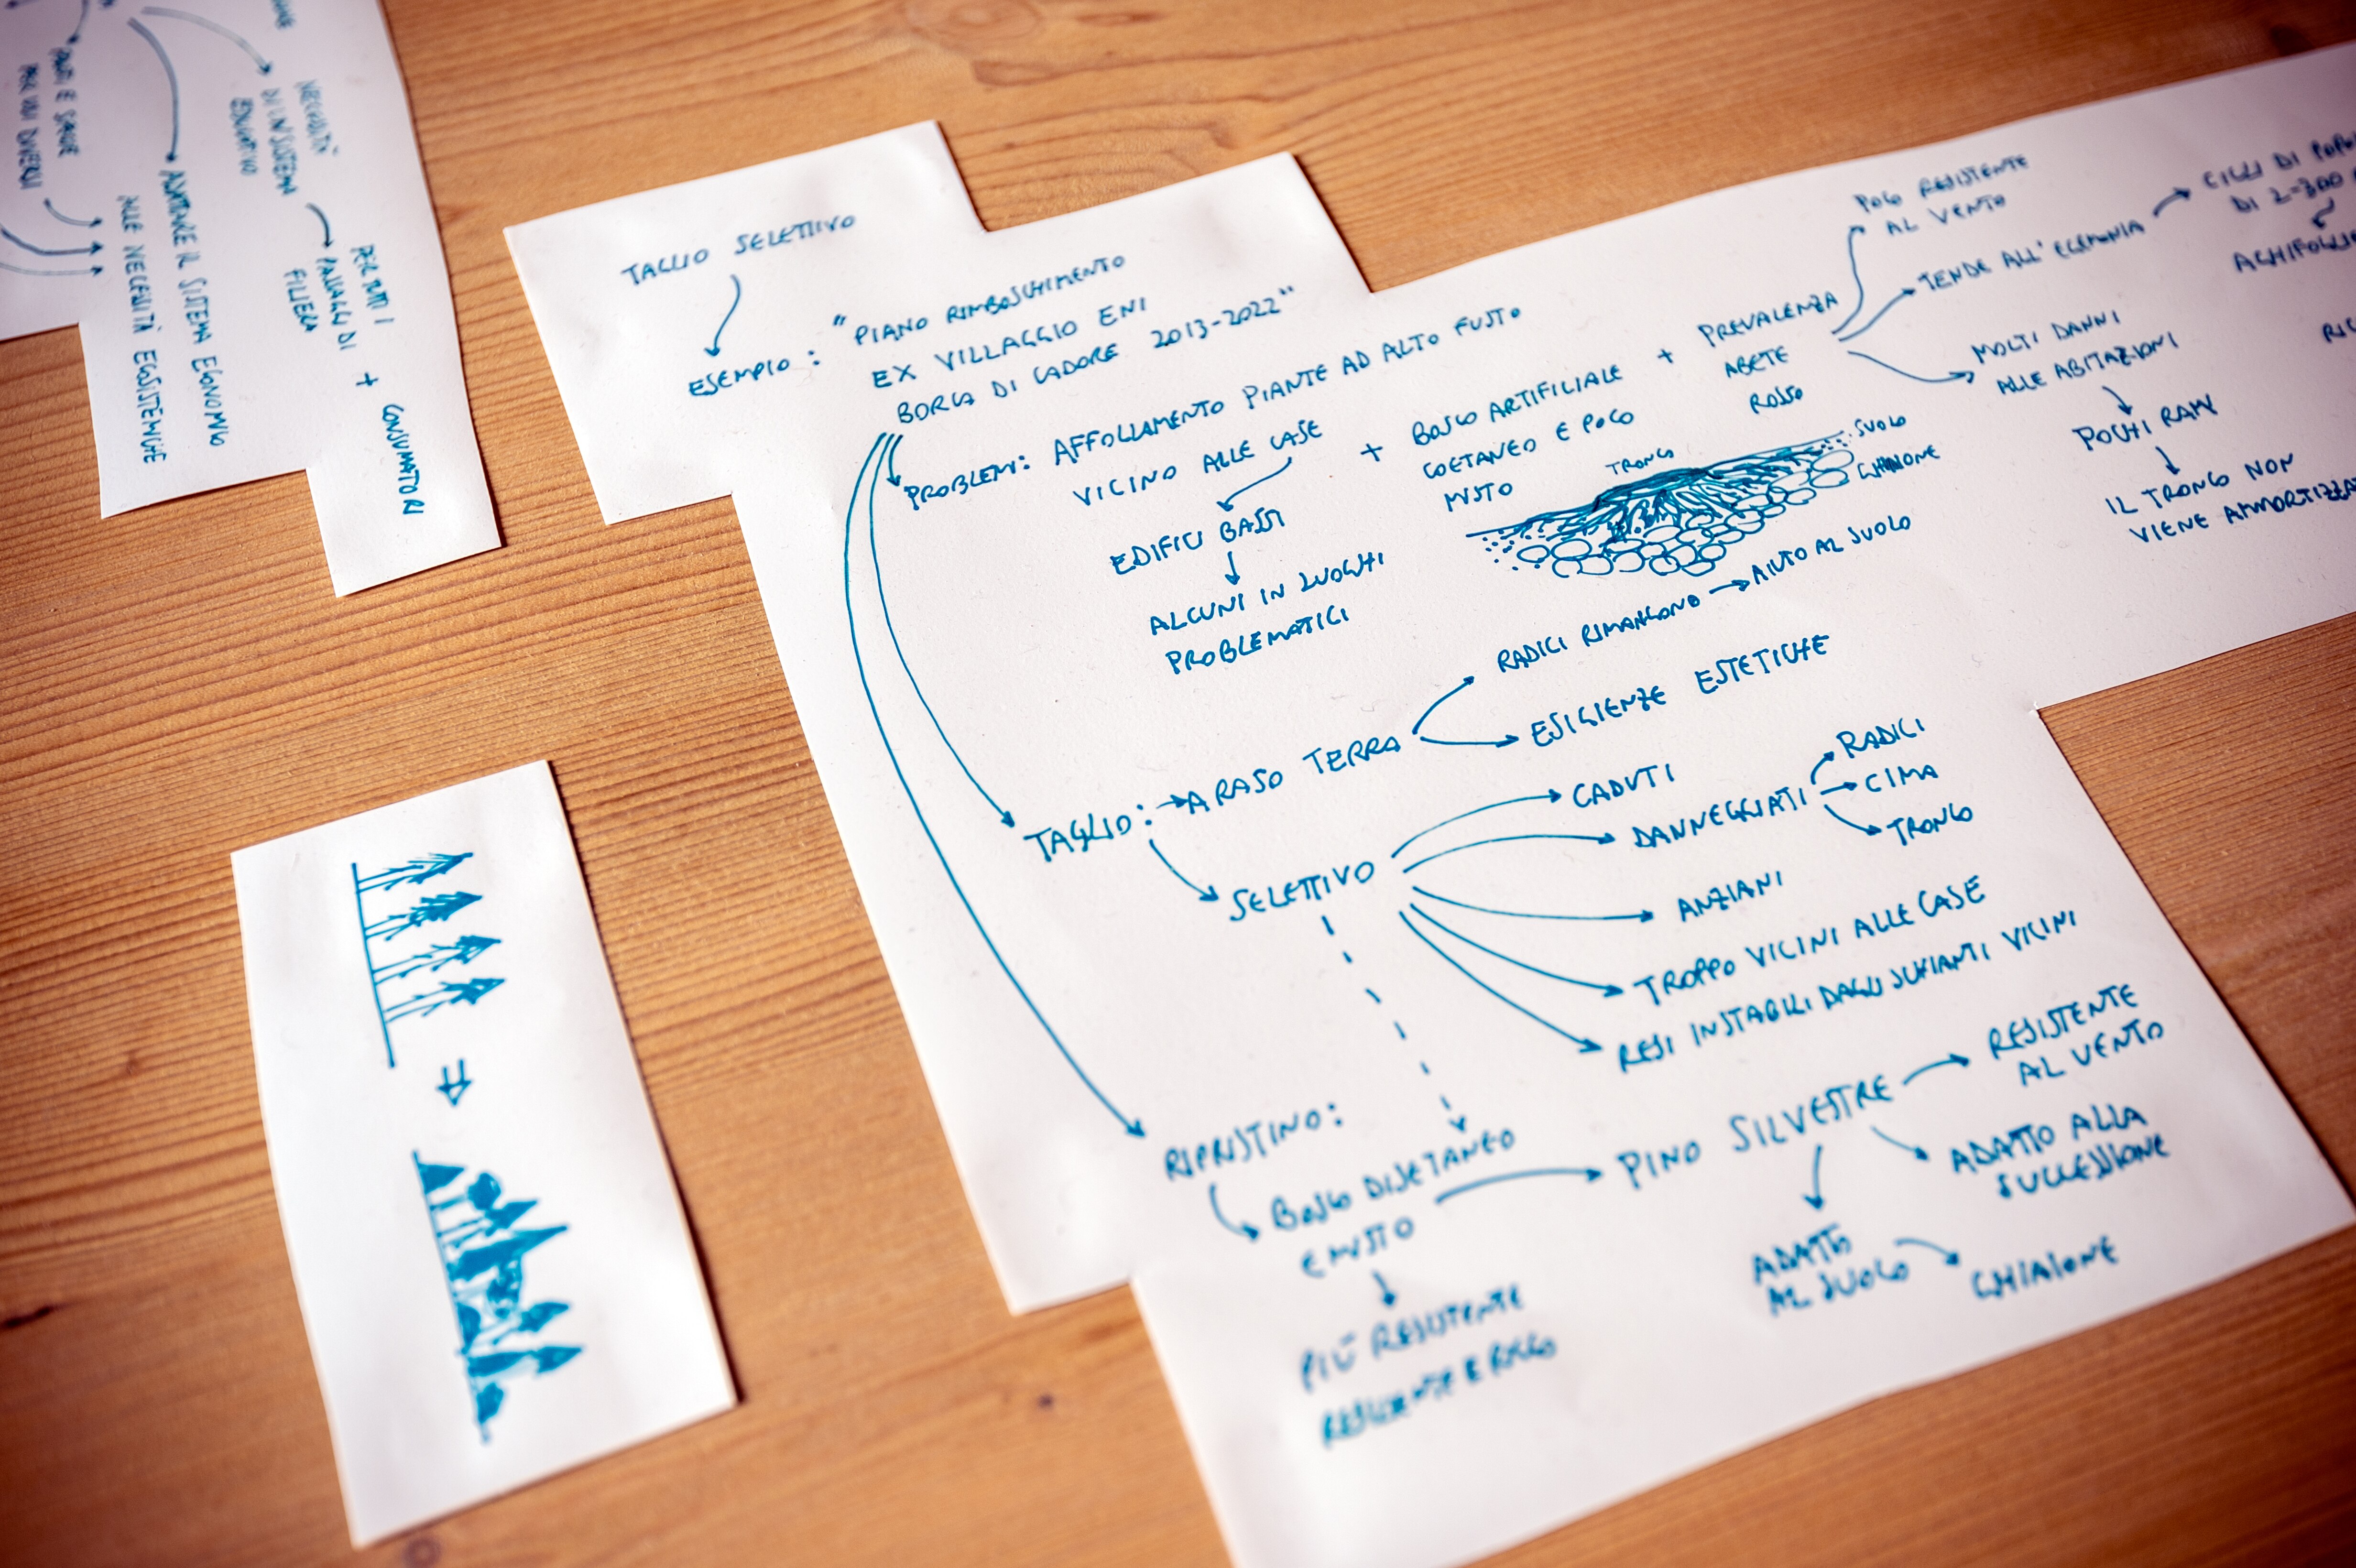 NECESSITÀ
DI UN SISTEMA
EDUCATIVO
PER TUTTI I
PASSAGGI DI
FILIERA
+
CONSUMATORI
ADATTARE IL SISTEMA ECONOMICO
ALLE NECESSITÀ ECOSISTEMICHE
TAGLIO SELETTIVO
ESEMPIO: "PIANO RIMBOSCHIMENTO
EX VILLAGGIO ENI
BORCA DI CADORE 2013-2022"
PROBLEMI: AFFOLLAMENTO PIANTE AD ALTO FUSTO
VICINO ALLE CASE
EDIFICI BASSI
ALCUNI IN LUOGHI
PROBLEMATICI
+ BOSCO ARTIFICIALE
COETANEO E POCO
MISTO
+ PREVALENZA
ABETE
ROSSO
POCO RESISTENTE
AL VENTO
TENDE ALL'EGEMONIA
CICLI DI
DI 2-300
MOLTI DANNI
ALLE ABITAZIONI
POCHI RAMI
IL TRONCO NON
VIENE
TRONCO
SUOLO
GHIAIONE
TAGLIO: A RASO TERRA
RADICI RIMANGONO → AIUTO AL SUOLO
ESIGIENZE ESTETICHE
SELETTIVO
CADUTI
DANNEGGIATI
RADICI
CIMA
TRONCO
ANZIANI
TROPPO VICINI ALLE CASE
RESI INSTABILI DAGLI SCHIANTI VICINI
RIPRISTINO:
BOSCO DISETANEO
E MISTO
PIÙ RESISTENTE
PINO SILVESTRE
RESISTENTE
AL VENTO
ADATTO ALLA
SUCCESSIONE
ADATTO
AL SUOLO
GHIAIONE